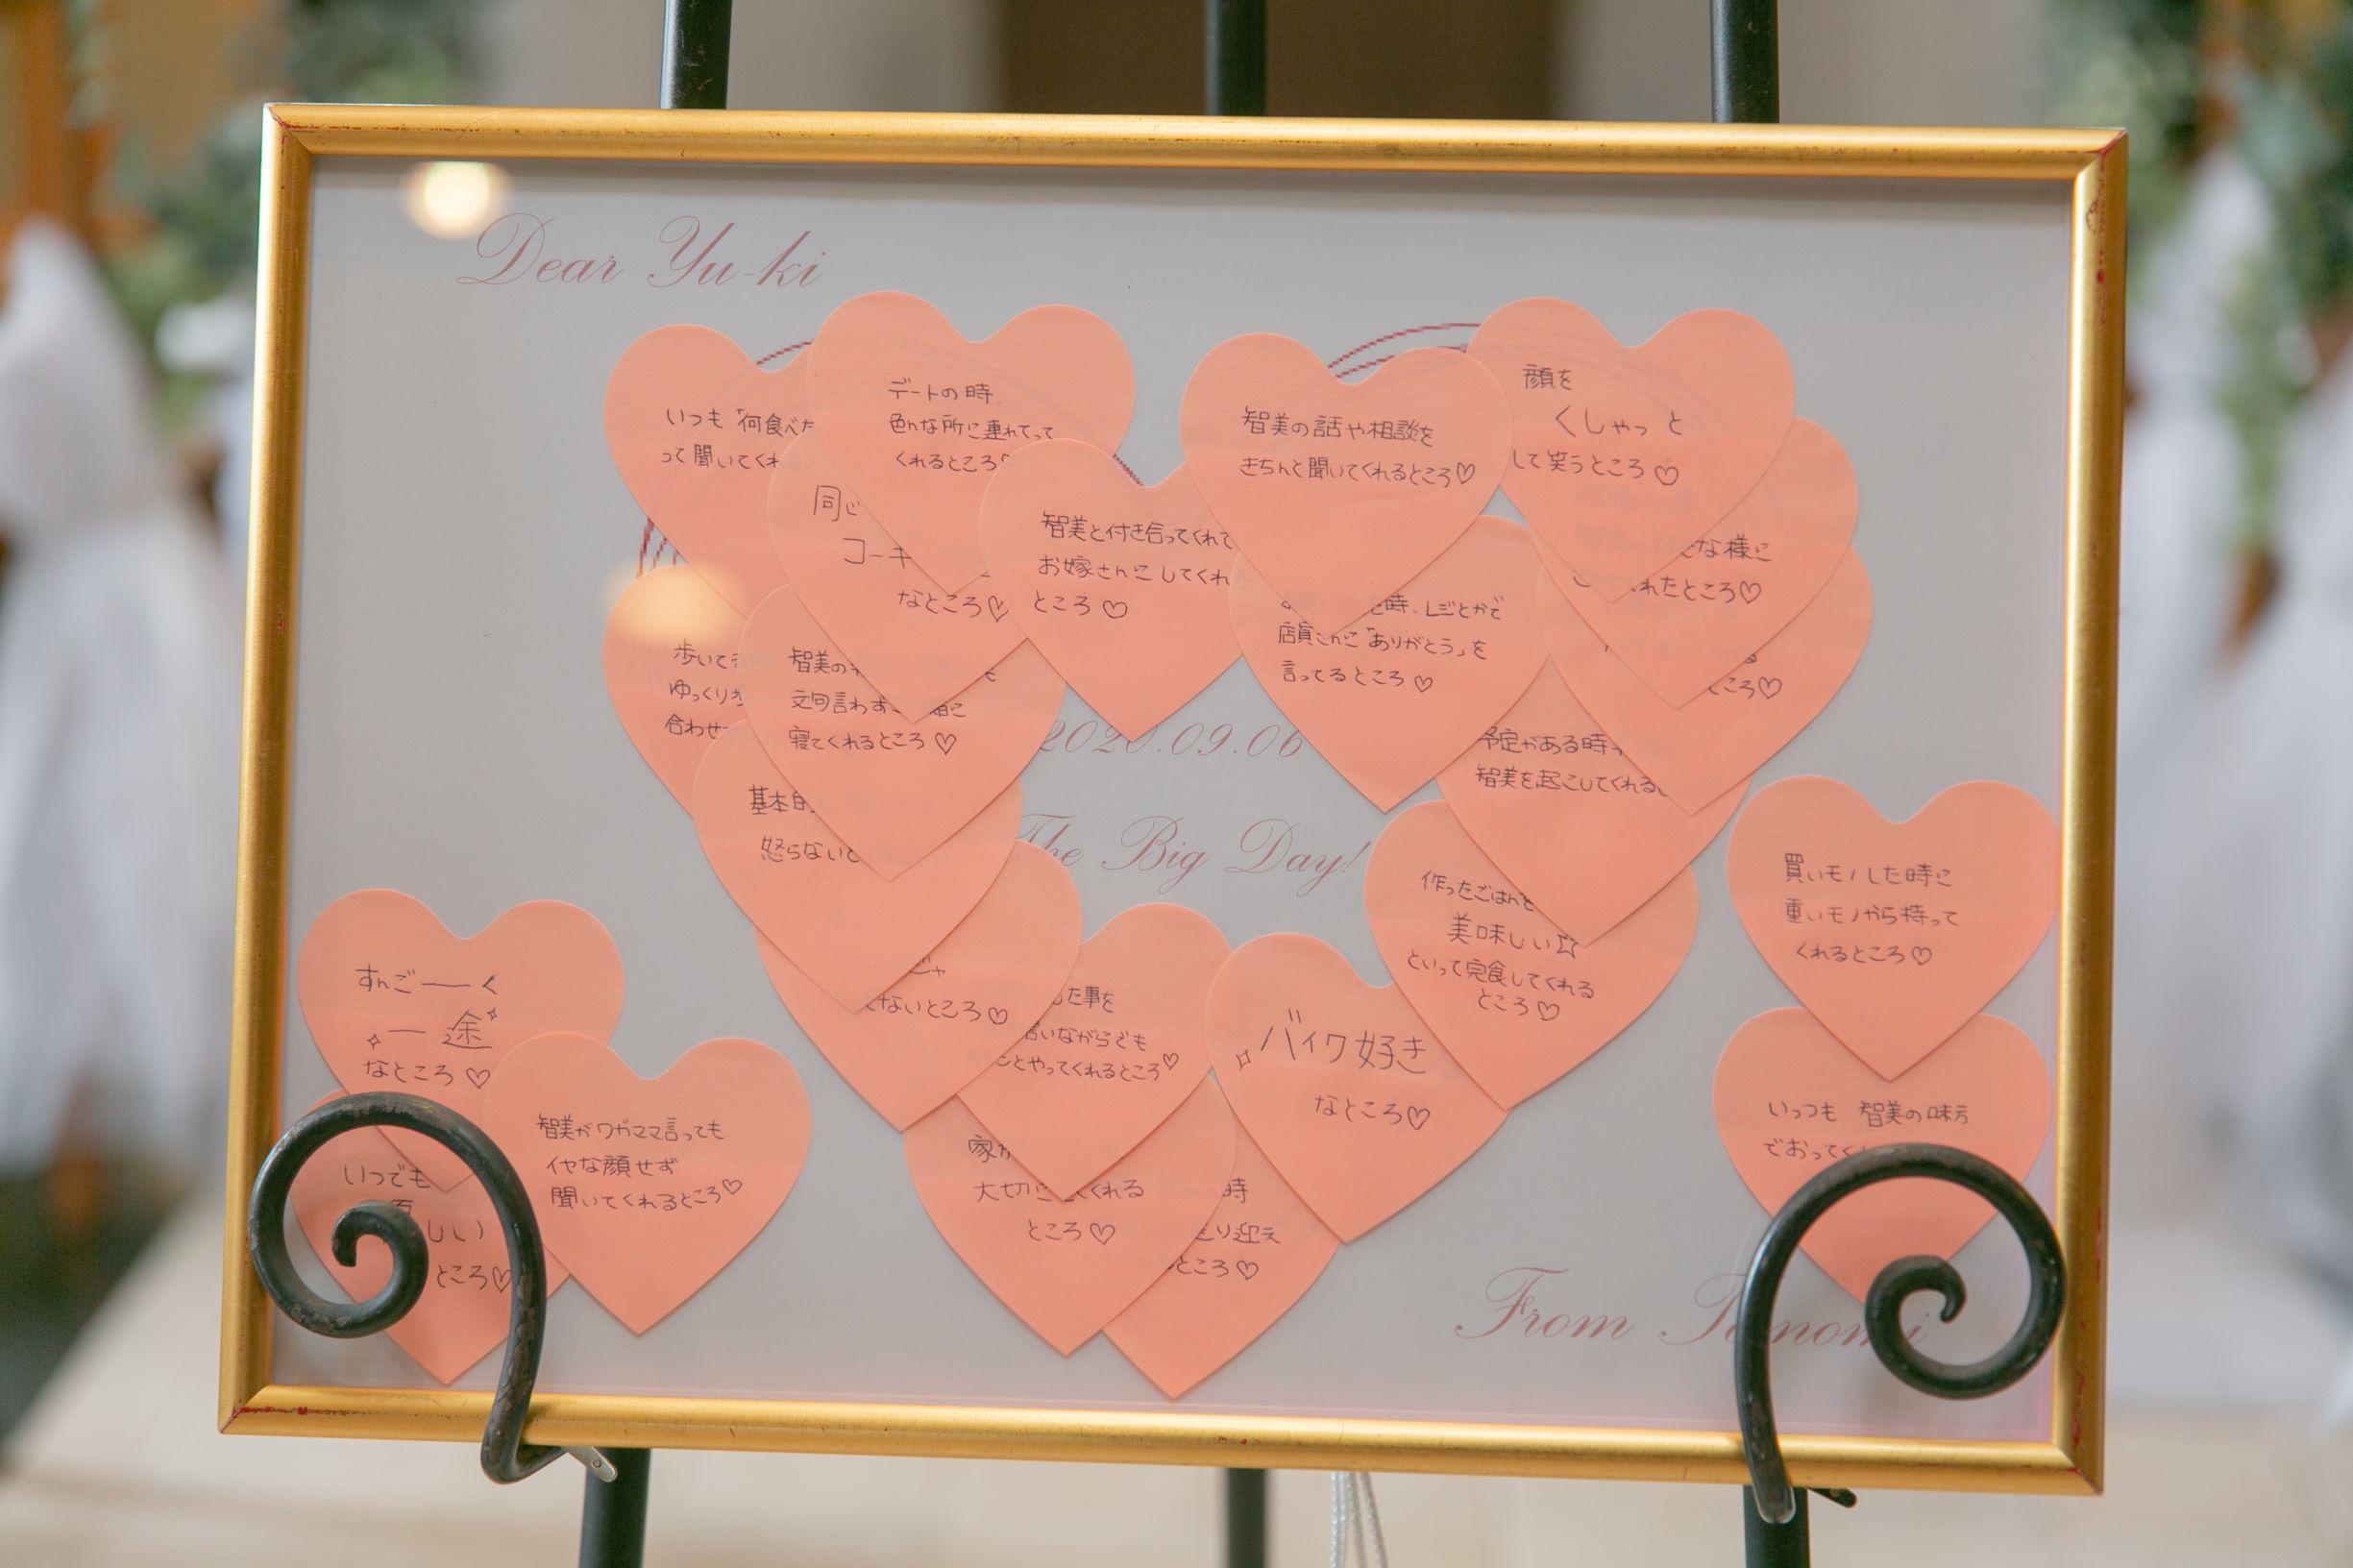 Dear Yu-ki
いつも「何食べた
って聞いてくれ
デートの時
色んな所に連れてって
くれるところ♡
同じ
コーヒ
なところ♡
智美と付き合ってくれて
お嫁さんにしてくれ
ところ♡
智美の話や相談を
きちんと聞いてくれるところ♡
顔を
くしゃっと
して笑うところ♡
な様に
れたところ♡
ところ♡
時、レジとかで
店員さんに「ありがとう」を
言ってるところ♡
歩いて
ゆっくり
合わせ
智美の
文句言わず
寝てくれるところ♡
2020.09.06
予定がある時
智美を起こしてくれる
基本的
怒らないと
The Big Day!
作ったごはんを
美味しい☆
といって完食してくれる
ところ♡
買いモノした時に
重いモノから持って
くれるところ♡
すんごーーく
一途
なところ♡
ないところ♡
た事を
言いながらでも
とやってくれるところ♡
バイク好き
なところ♡
いっつも 智美の味方
でおってく
智美がワガママ言っても
イヤな顔せず
聞いてくれるところ♡
いつでも
しい
ところ♡
家
大切に
くれる
ところ♡
時
り迎え
ところ♡
From